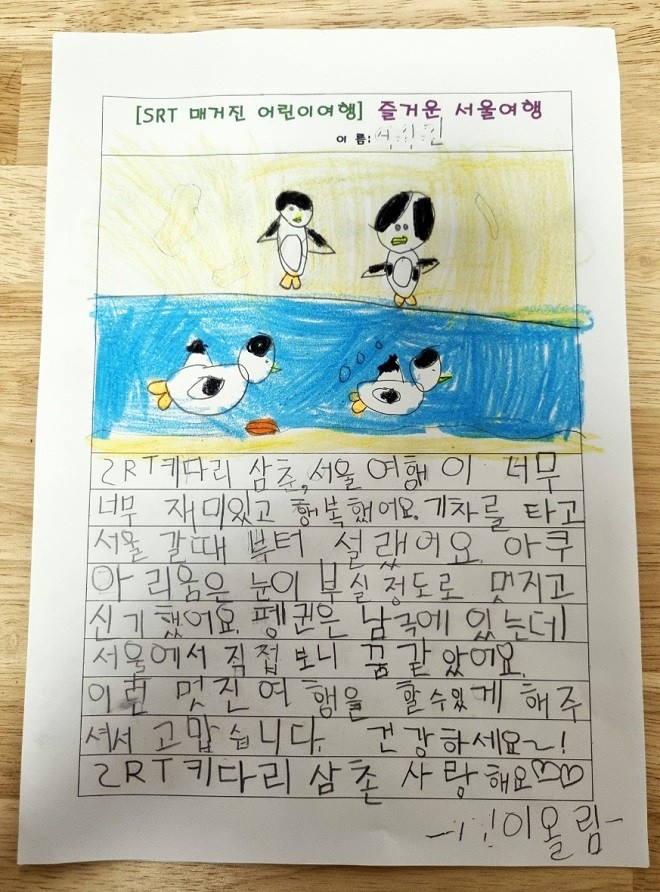 [SRT 매거진 어린이여행] 즐거운 서울여행
이 름:
SRT키다리 삼촌, 서울 여행 이 너무
너무 재미있고 행복했어요. 기차를 타고
서울 갈때 부터 설렜어요. 아쿠
아리움은 눈이 부실정도로 멋지고
신기했어요. 펭귄은 남극에 있는데
서울에서 직접 보니 꿈같았어요.
이런 멋진 여행을 할수있게 해주
셔서 고맙습니다. 건강하세요~!
SRT키다리 삼촌 사랑해요♡♡
이올림-